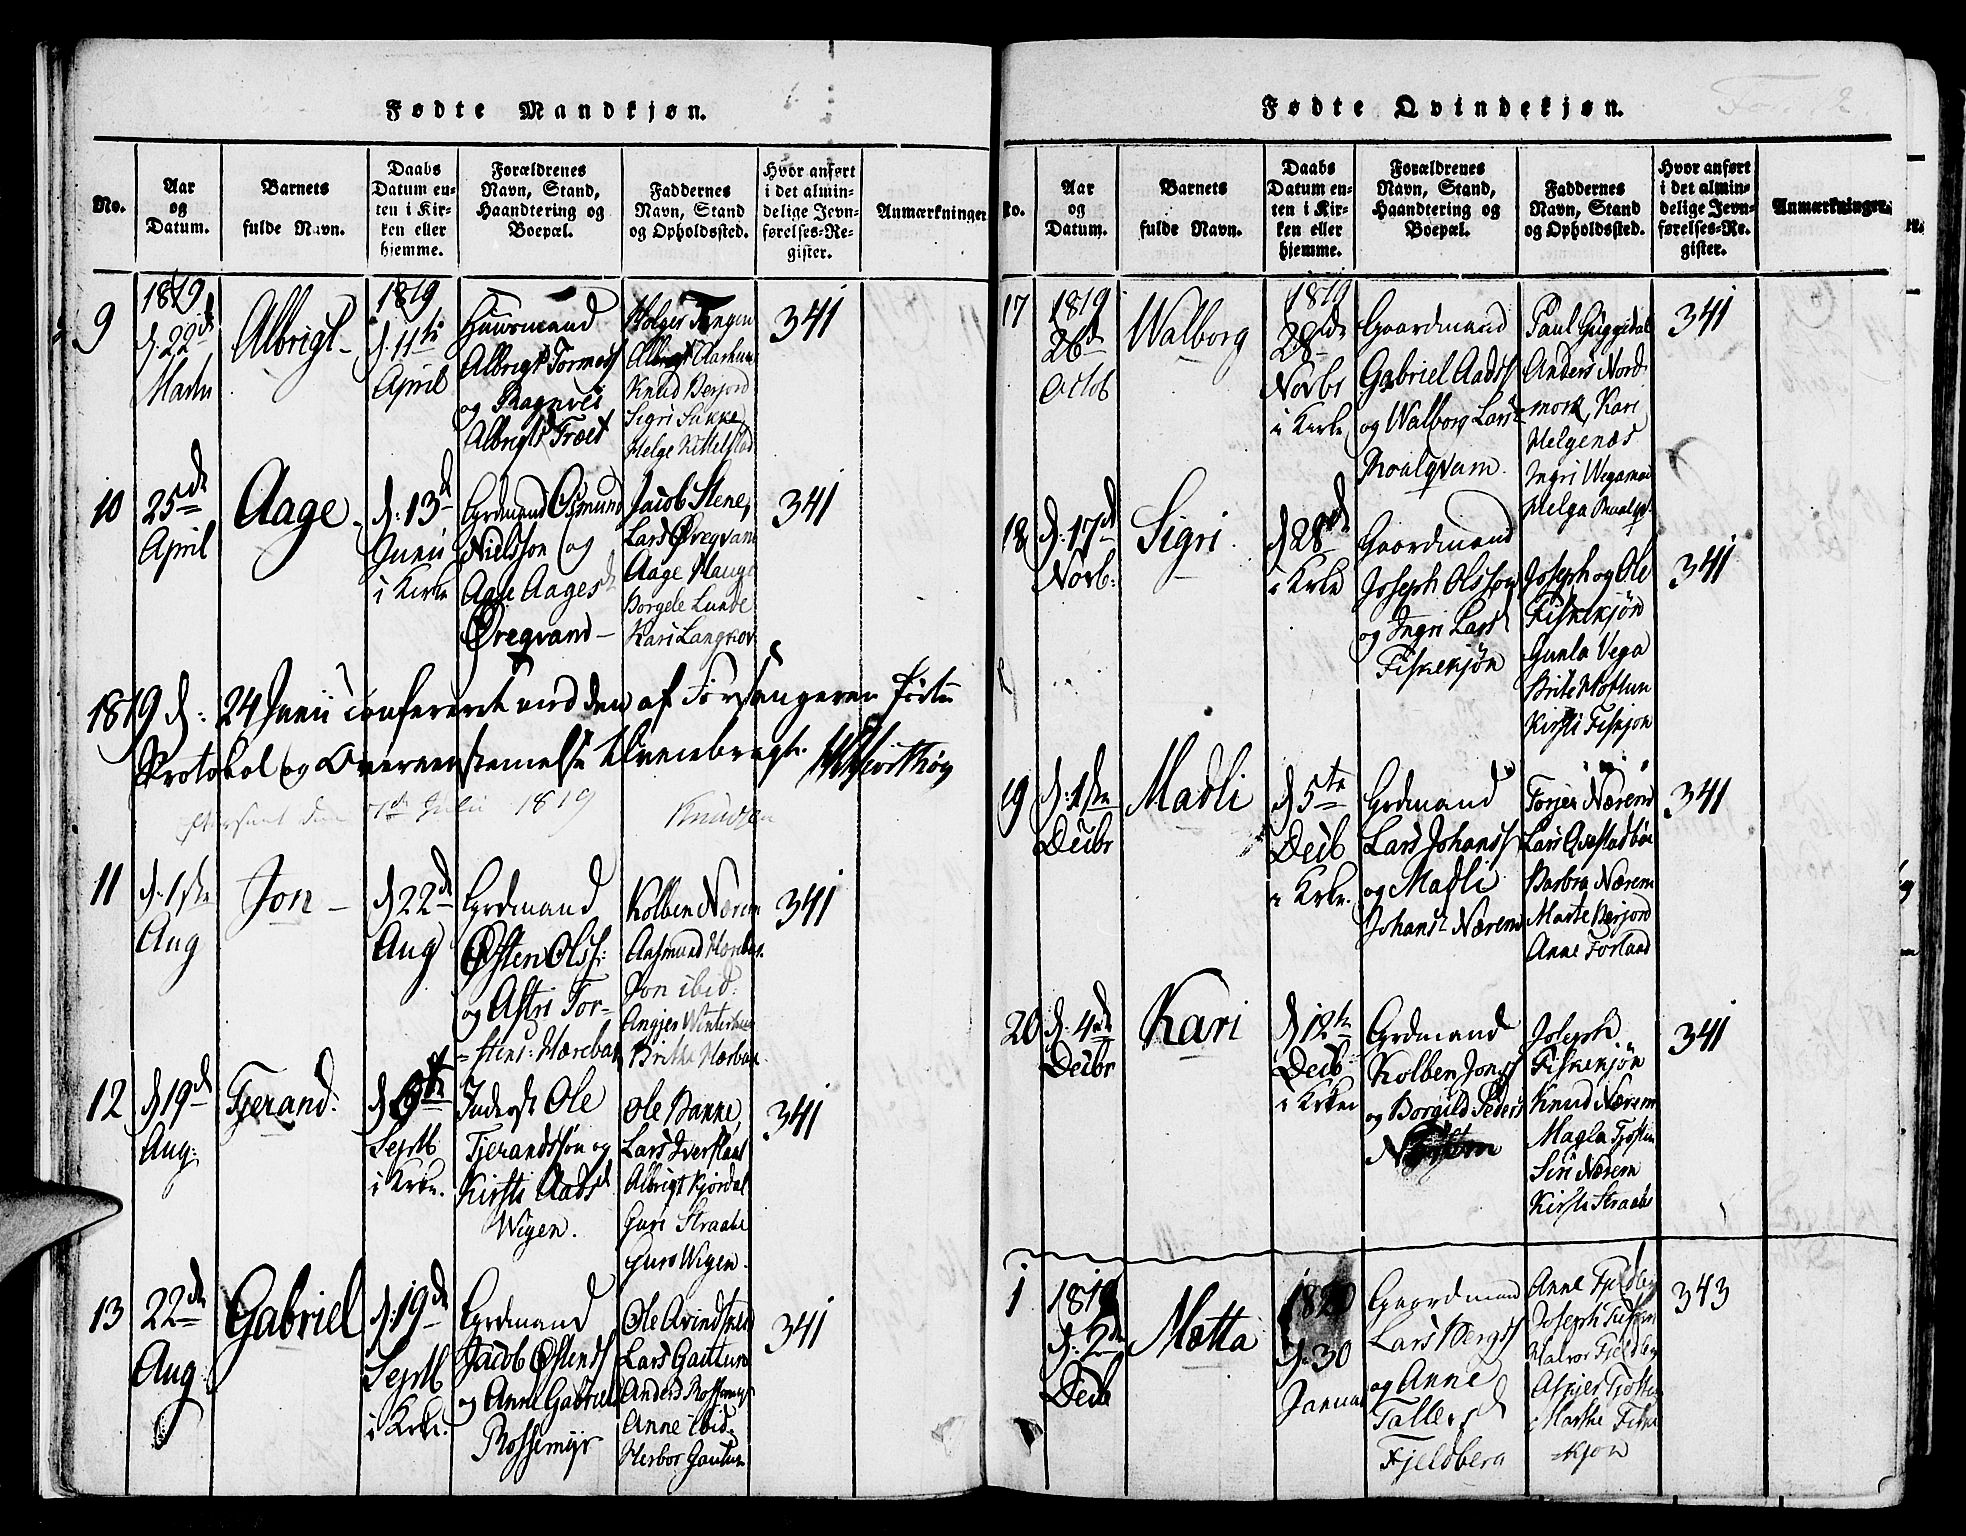 Fødte Mandkjøn.
No.
Aar
og
Datum.
Barnets
fulde Navn.
Daabs
Datum en-
ten i Kir-
ken eller
hjemme.
Forældrenes
Navn, Stand,
Haandtering og
Boepæl.
Faddernes
Navn, Stand
og Opholdssted.
Hvor anført
i det almin-
delige Jevn-
førelses-Re-
gister.
Anmærkninger
9
1819
d. 22de
Martii
Albrigt
1819
d. 11te
April
Huusmand
Albrigt Tormods
og Ragnvei
Albrigtsd Træet
Holger Tengen
Albrigt Aarhuus
Knud Berjord
Sigri
Helge Kittelstad
341
10
25de
April
Aage
d. 13d
Junii
i Kirke
Grdmand Osmund
Nielsson og
Aase Aagesd
Øvregvam
Jacob Stene,
Lars Øvregvam
Aage Hauge
Borgele Lunde
Kari Langkov
341
1819 d. 24 Junii confereret med den af Forsangeren førte
Protokol og Overeensstemmelse tilveiebragt.
7de Julii 1819 Knudsen
11
d. 1ste
Aug
Jon
d 22de
Aug
Grdmand
Østen Olss:
og Astri Tor-
stens: Hærebak
Kolben Nærem
Aasmund Hærebak
Jon ibid:
Angjer
Britha Hærbak
341
12
d 19de
Aug:
Tjerand.
d
Septb
i Krke.
Inderst Ole
Tjerandssøn og
Kirsti Aadsd
Wigen.
Ole Bakke,
Lars Iverslaat
Albrigt Kjørdal
Guri Straabe
Guro Wigen.
341
13
22de
Aug
Gabriel
d. 19de
Septb
i Krke.
Grdmand
Jacob Østends
og Anne Gabriel
Rossemyr
Ole Arindstvedt
Lars Gautun
Anders Rossemyr
Anne ibid.
Herbor Gautun
341
Fødte Qvindekjøn.
No.
Aar
og
Datum.
Barnets
fulde Navn.
Daabs
Datum en-
ten i Kir-
ken eller
hjemme.
Forældrenes
Navn, Stand,
Haandtering og
Boepæl.
Faddernes
Navn, Stand
og Opholdssted.
Hvor anført
i det almin-
delige Jevn-
førelses-Re-
gister.
Anmærkninger.
17
1819
26d
Octob
Walborg
1819
28de
Novbr
i Kirke
Gaardmand
Gabriel Aadss
og Walborg Larsd
Roalqvam.
Paul Guggedal
Anders Nord-
mork, Kari
Helgenæs
Ingri Wegamoe
Helga Roalqv.
341
18
d. 17de
Novb:
Sigri
d 28de
i Krke
Gaardmand
Joseph Olsson
og Ingri Larsd
Fiskekjøn
Joseph og Ole
Fiskekjøn
Gunla Vega
Brite Mostun
Kirsti Fiskjøn
341
19
d. 1ste
Decbr
Madli
d 5te
Decb
i Krke.
Grdmand
Lars Johanss
og Madli
Johansd Nærem
Torjer Nærem
Lars Qvæstadbøe
Barbra Nærem
Marte Berjord
Anne Førland
341
20
d. 4de
Decbr
Kari
d 12te
Decb
i Krken
Grdmand
Kolben Jonss
og Borgild Peders
Joseph
Fiskekjøn
Knud Nærem
Magla Tjøstem
Siri Nærem
Kirsti Straabe
341
1
1819
d. 2de
Decb
Mætta
1820
d. 30
Januar
Gaardmand
Lars Bergss
og Anne
Tallersd
Fjeldberg
Anne Fjeldberg
Joseph Fiskin
Halvor Fjeldberg
Aspjer Tjøstem
Marthe Fiske
-kjøn
343